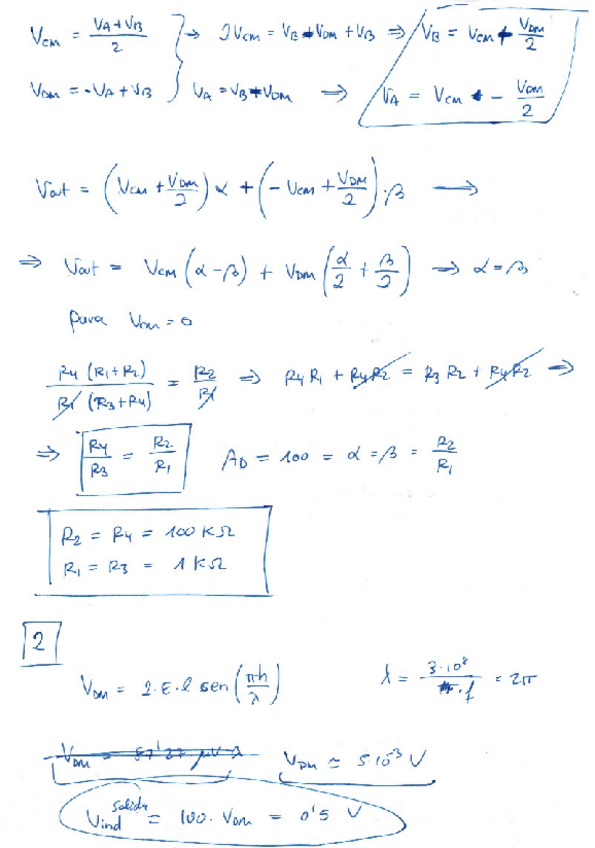 Vcm = (VA + VB)/2 → 2Vcm = VB + VDM + VB ⇒ VB = Vcm + VDM/2
VDM = -VA + VB VA = VB + VDM ⇒ VA = Vcm - VDM/2
Vout = (Vcm + VDM/2) α + (-Vcm + VDM/2)·β →
⇒ Vout = Vcm (α-β) + VDM (α/2 + β/2) → α = β
para Vcm = 0
R4 (R1+R2) / R1 (R3+R4) = R2/R1 ⇒ R4 R1 + R4 R2 = R3 R2 + R4 R2 ⇒
⇒ R4/R3 = R2/R1 AD = 100 = α = β = R2/R1
R2 = R4 = 100 KΩ
R1 = R3 = 1 KΩ
2
VDM = 2·E·l sen(πh/λ) λ = 3·10⁸/f = 2π
VDM = 87'27 μV VDM ≃ 5·10⁻³ V
Vind salida = 100·VDM = 0'5 V